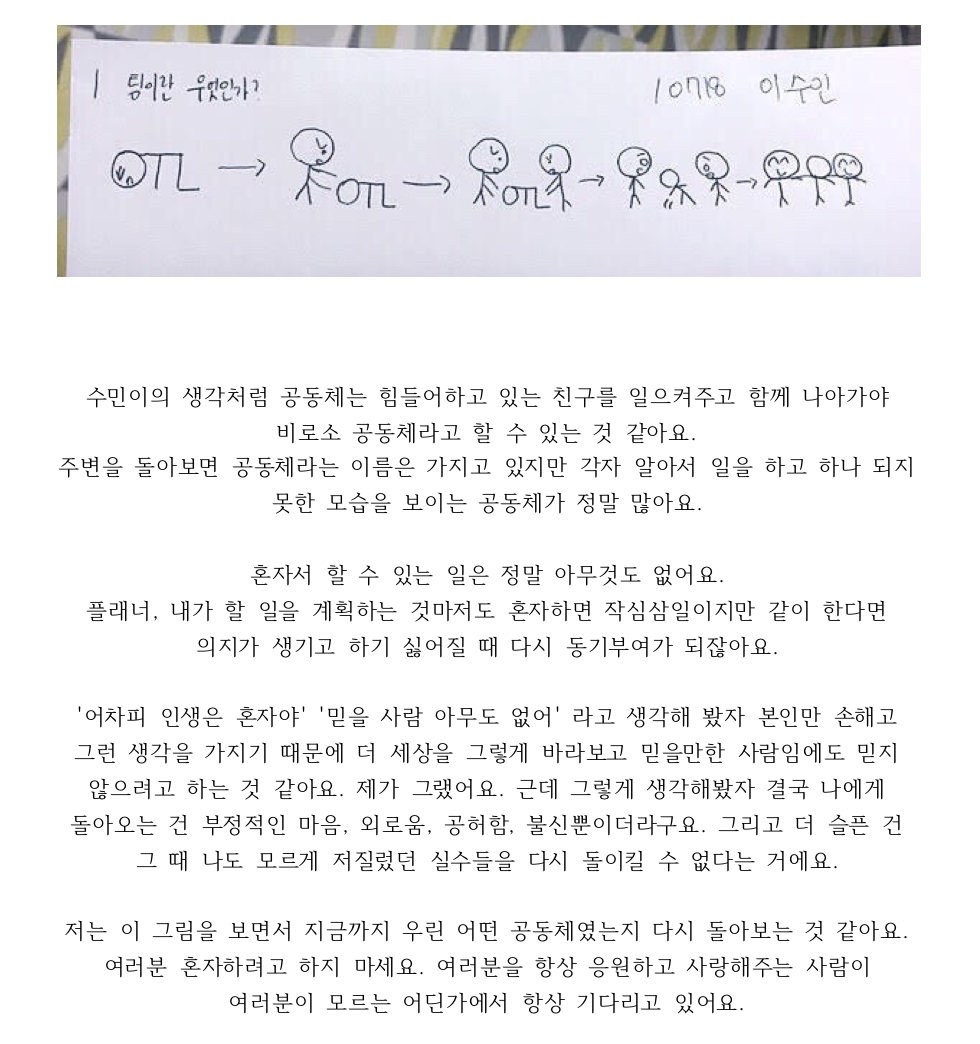 1 팀이란 무엇인가?
10718 이수민
수민이의 생각처럼 공동체는 힘들어하고 있는 친구를 일으켜주고 함께 나아가야
비로소 공동체라고 할 수 있는 것 같아요.
주변을 돌아보면 공동체라는 이름은 가지고 있지만 각자 알아서 일을 하고 하나 되지
못한 모습을 보이는 공동체가 정말 많아요.
혼자서 할 수 있는 일은 정말 아무것도 없어요.
플래너, 내가 할 일을 계획하는 것마저도 혼자하면 작심삼일이지만 같이 한다면
의지가 생기고 하기 싫어질 때 다시 동기부여가 되잖아요.
'어차피 인생은 혼자야' '믿을 사람 아무도 없어' 라고 생각해 봤자 본인만 손해고
그런 생각을 가지기 때문에 더 세상을 그렇게 바라보고 믿을만한 사람임에도 믿지
않으려고 하는 것 같아요. 제가 그랬어요. 근데 그렇게 생각해봤자 결국 나에게
돌아오는 건 부정적인 마음, 외로움, 공허함, 불신뿐이더라구요. 그리고 더 슬픈 건
그 때 나도 모르게 저질렀던 실수들을 다시 돌이킬 수 없다는 거에요.
저는 이 그림을 보면서 지금까지 우린 어떤 공동체였는지 다시 돌아보는 것 같아요.
여러분 혼자하려고 하지 마세요. 여러분을 항상 응원하고 사랑해주는 사람이
여러분이 모르는 어딘가에서 항상 기다리고 있어요.